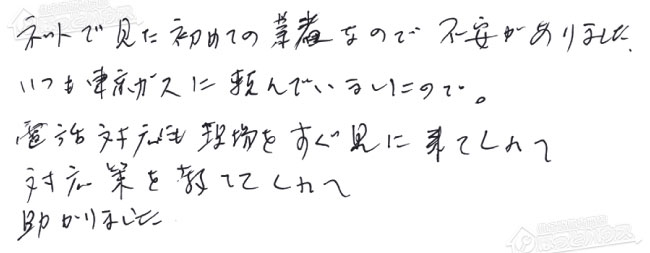 ネットで見た初めての業者なので不安がありました。
いつも東京ガスに頼んでいましたので。
電話対応も現場をすぐ見に来てくれて
対応策を教えてくれて
助かりました